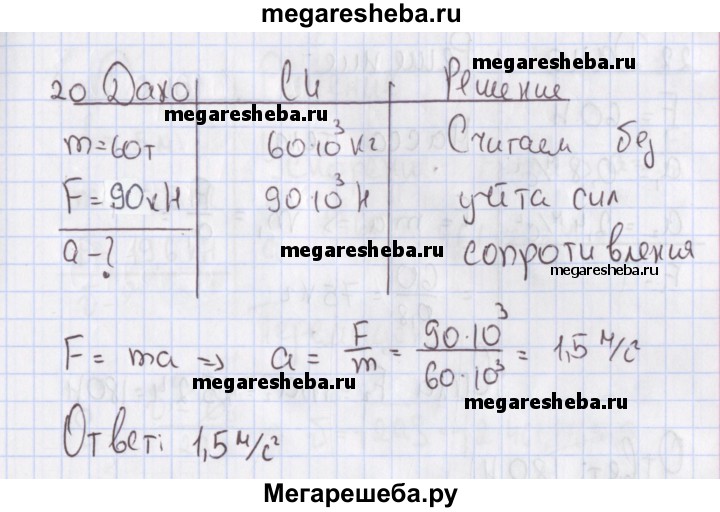 megaresheba.ru
20 Дано СИ Решение
megaresheba.ru megaresheba.ru
m=60т 60·10³ кг Считаем без
F=90кН 90·10³ Н учёта сил
a-? megaresheba.ru сопротивления
megaresheba.ru
F = ma => a = F/m = 90·10³/60·10³ = 1,5 м/с²
megaresheba.ru megaresheba.ru
Ответ: 1,5 м/с²
Мегарешеба.ру